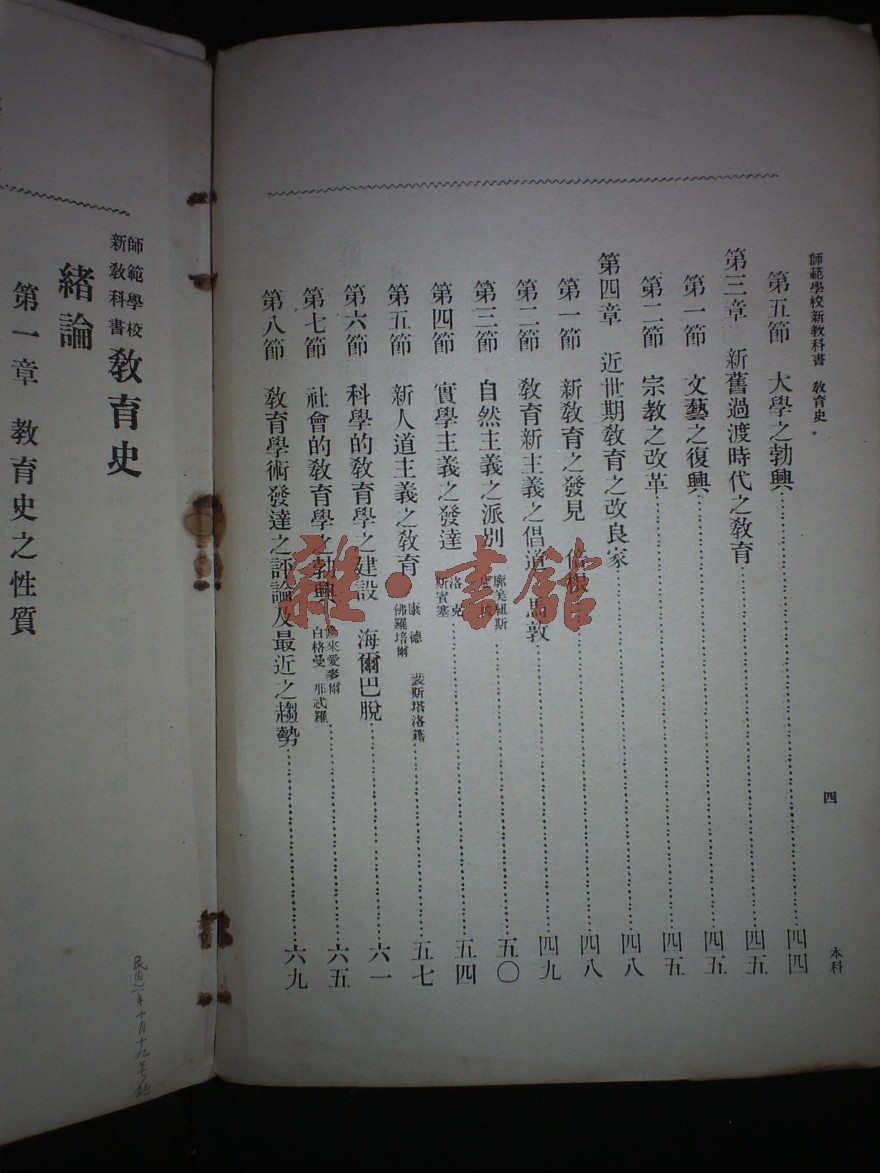 師範學校新教科書 教育史
四
本科
第五節 大學之勃興 四四
第三章 新舊過渡時代之敎育 四五
第一節 文藝之復興 四五
第二節 宗敎之改革 四五
第四章 近世期敎育之改良家 四八
第一節 新敎育之發見 倍根 四八
第二節 敎育新主義之倡道 馬敦 四九
第三節 自然主義之派別 廓美紐斯 五〇
第四節 實學主義之發達 洛克 斯賓塞 五四
第五節 新人道主義之敎育 康德 佛羅培爾 裴斯塔洛錫 五七
第六節 科學的敎育學之建設 海爾巴脫 六一
第七節 社會的敎育學之勃興 來愛麥爾 白格曼 那忒羅 六五
第八節 敎育學術發達之評論及最近之趨勢 六九
師範學校
新敎科書
敎育史
緒論
第一章 敎育史之性質
民國六年十月十九号
雜·書館